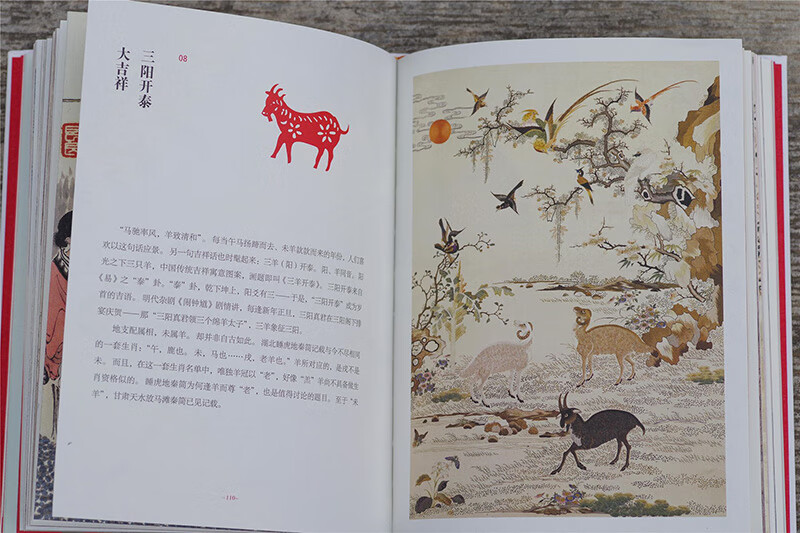 08
三阳开泰
大吉祥
“马驰率风，羊致清和”。每当午马扬蹄而去、未羊款款而来的年份，人们喜
欢以这句话应景。另一句吉祥话也时髦起来：三羊（阳）开泰。阳、羊同音，阳
光之下三只羊，中国传统吉祥寓意图案，画题即叫《三羊开泰》。三阳开泰来自
《易》之“泰”卦。“泰”卦，乾下坤上，阳爻有三——于是，“三阳开泰”成为岁
首的吉语。明代杂剧《闹钟馗》剧情讲，每逢新年正旦，三阳真君在三阳阁下排
宴庆贺——那“三阳真君领三个绵羊太子”，三羊象征三阳。
地支配属相，未属羊。却并非自古如此。湖北睡虎地秦简记载与今不尽相同
的一套生肖：“午，鹿也。未，马也……戌，老羊也。”羊所对应的，是戌不是
未。而且，在这一套生肖名单中，唯独羊冠以“老”，好像“羔”羊尚不具备做生
肖资格似的。睡虎地秦简为何逢羊而尊“老”，也是值得讨论的题目。至于“未
羊”，甘肃天水放马滩秦简已见记载。
-110-